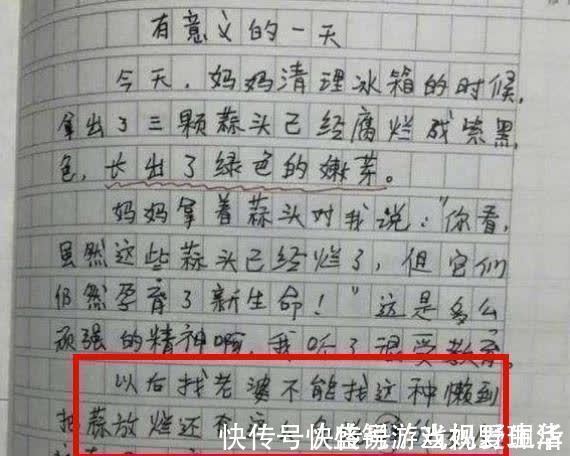 有意义的一天
今天,妈妈清理冰箱的时候,
拿出了三颗蒜头已经腐烂成紫黑
色,长出了绿色的嫩芽。
妈妈拿着蒜头对我说:"你看,
虽然这些蒜头已经烂了,但它们
仍然孕育了新生命!"这是多么
顽强的精神啊,我听了很受教育,
以后找老婆不能找这种懒到
把蒜放烂还
快传号